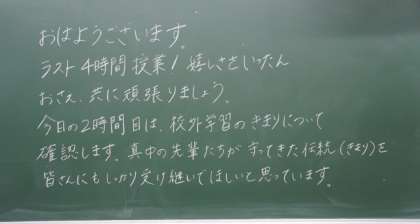 おはようございます。
ラスト4時間授業！嬉しさをいったん
おさえ、共に頑張りましょう。
今日の2時間目は、校外学習のきまりについて
確認します。真中の先輩たちが守ってきた伝統（きまり）を
皆さんにもしっかり受け継いでほしいと思っています。